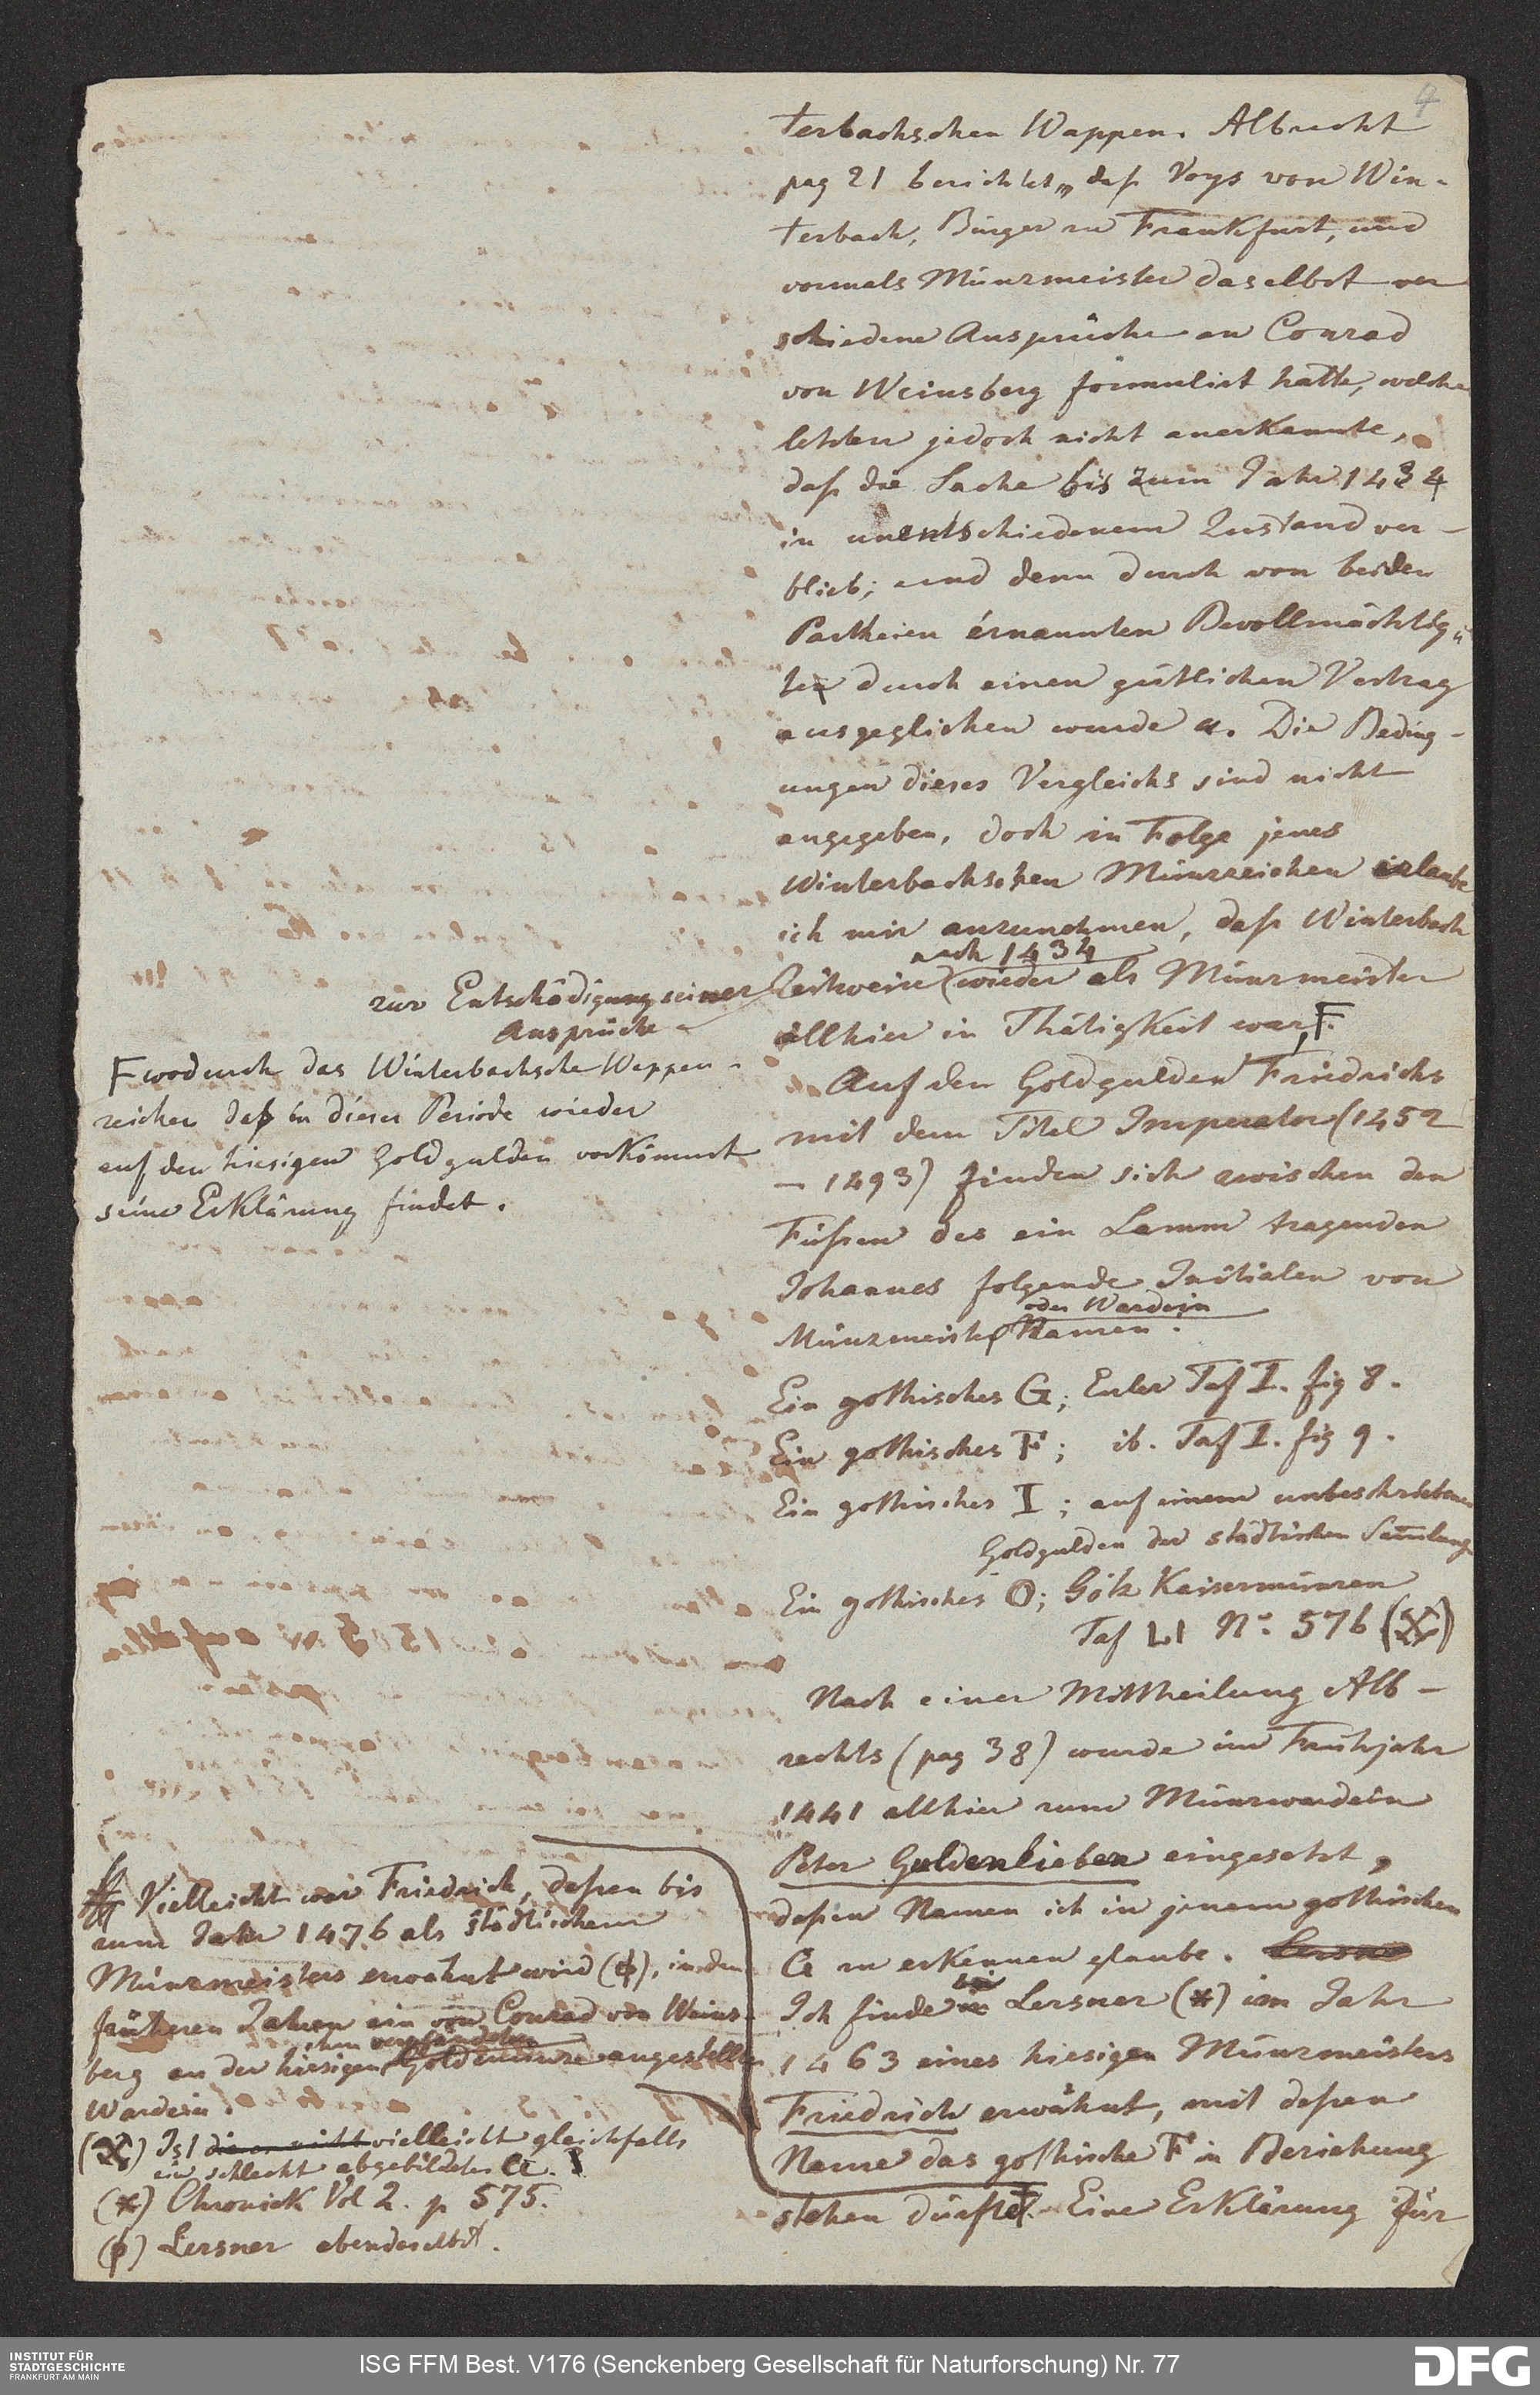 4
terbachschen Wappen. Albrecht
pag 21 berichtet„ daß Voys von Win-
terbach, Bürger zu Frankfurt, und
vormals Münzmeister daselbst ver
schiedene Ansprüche an Conrad
von Weinsberg formulirt hatte, welche
letzterer jedoch nicht anerkannte,
daß die Sache bis zum Jahr 1434
in unentschiedenem Zustand ver-
blieb; und denn durch von beiden
Partheien ernannten Bevollmächtig„
ten durch einen gütlichen Vertrag
ausgeglichen wurde“. Die Beding-
ungen dieses Vergleichs sind nicht
angegeben, doch in Folge jenes
Winterbachschen Münzzeichen erlaube
ich mir anzunehmen, daß Winterbach
nach 1434
zeitweise wieder als Münzmeister
allhier in Thätigkeit war, F.
zur Entschädigung seiner
Ansprüche
F wodurch das Winterbachsche Wappen-
zeichen daß in dieser Periode wieder
auf den hiesigen Goldgulden vorkömmt
seine Erklärung findet.
Auf den Goldgulden Friedrichs
mit dem Titel Imperator (1452
- 1493) finden sich zwischen den
Füßen des ein Lamm tragenden
Johannes folgende Initialen von
oder Wardein
Münzmeister Namen.
Ein gothisches G; Euler Taf I. fig 8.
Ein gothisches F; ib. Taf I. fig 9.
Ein gothisches I; auf einem unbeschriebenen
Goldgulden der städtischen Samlung
Ein gothisches O; Götz Kaisermünzen
Taf LI No. 576 (X)
Nach einer Mittheilung Alb-
rechts (pag 38) wurde im Frühjahr
1441 allhier zum Münzwardein
Peter Guldenlieben eingesetzt,
deßen Namen ich in jenem gothischen
G zu erkennen glaube. Lersne
Ich finde bei Lersner (*) im Jahr
1463 eines hiesigen Münzmeisters
Friedrich erwähnt, mit deßen
Name das gothische F in Beziehung
stehen dürfte. Eine Erklärung für
Vielleicht war Friedrich, deßen bis
zum Jahr 1476 als städtischem
Münzmeisters erwähnt wird (ϕ), in den
früheren Jahren ein von Conrad von Weins-
ihm verpfändeten
berg an der hiesigen Goldmünze angestellter
Wardein.
(X) Ist dieses nicht vielleicht gleichfalls
ein schlecht abgebildetes G.
(*) Chronick Vol 2. p 575.
(ϕ) Lersner ebendaselbst.
INSTITUT FÜR
STADTGESCHICHTE
FRANKFURT AM MAIN
ISG FFM Best. V176 (Senckenberg Gesellschaft für Naturforschung) Nr. 77
DFG